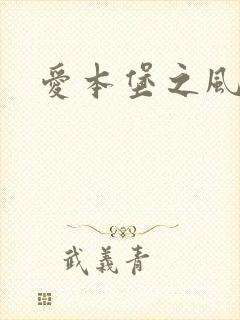 愛本堡之風
武義青